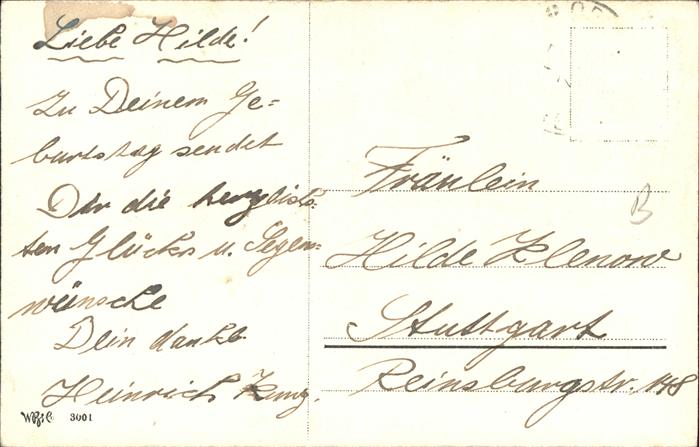 Liebe Hilde!
Zu Deinem Ge=
burtstag sendet
Dir die herzlichs-
ten Glücks u. Segens-
wünsche
Dein dankb.
Heinrich
3001
Fräulein
Hilde Klenow
Stuttgart
Reinsburgstr. 148
B